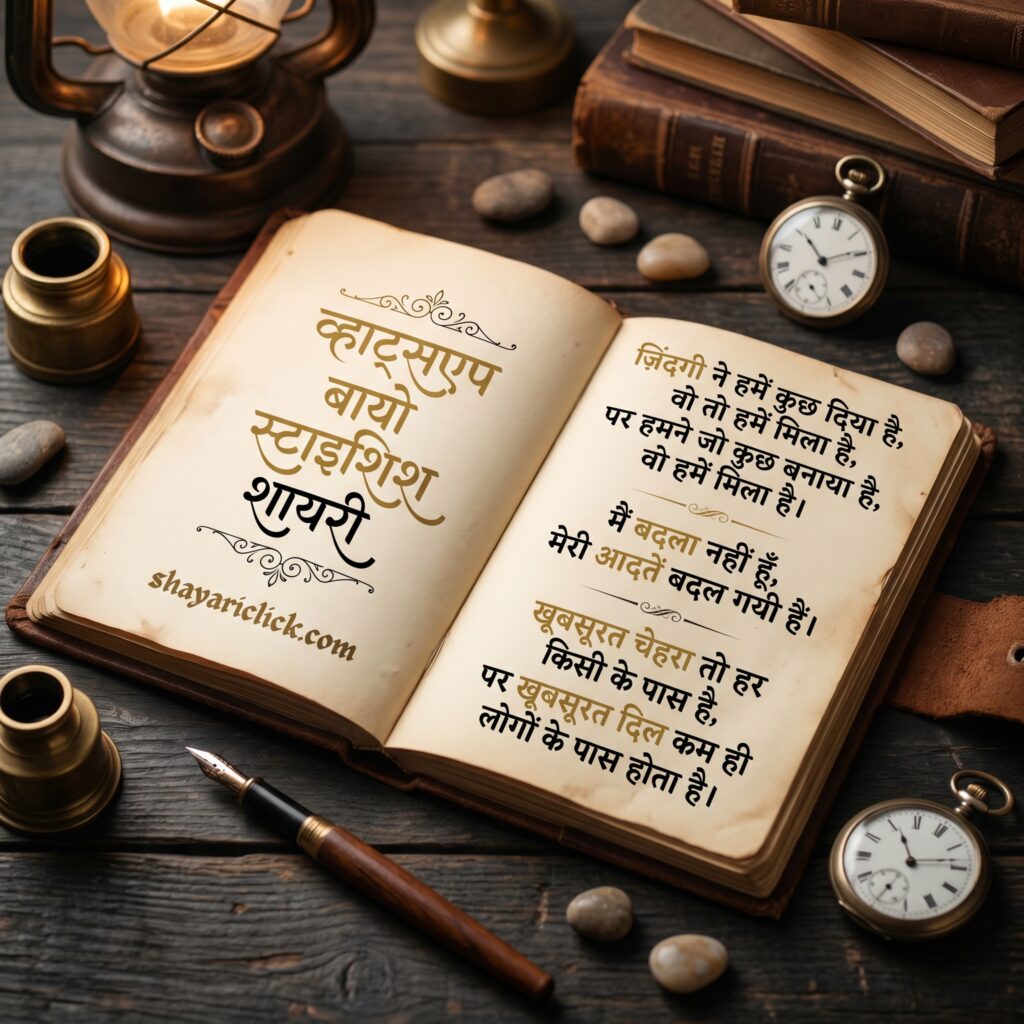 व्हाट्सएप
बायो
स्टाइशिश
शायरी
shayariclick.com
ज़िंदगी ने हमें कुछ दिया है,
वो तो हमें मिला है,
पर हमने जो कुछ बनाया है,
वो हमें मिला है।
मैं बदला नहीं हूँ,
मेरी आदतें बदल गयी हैं।
खूबसूरत चेहरा तो हर
किसी के पास है,
पर खूबसूरत दिल कम ही
लोगों के पास होता है।